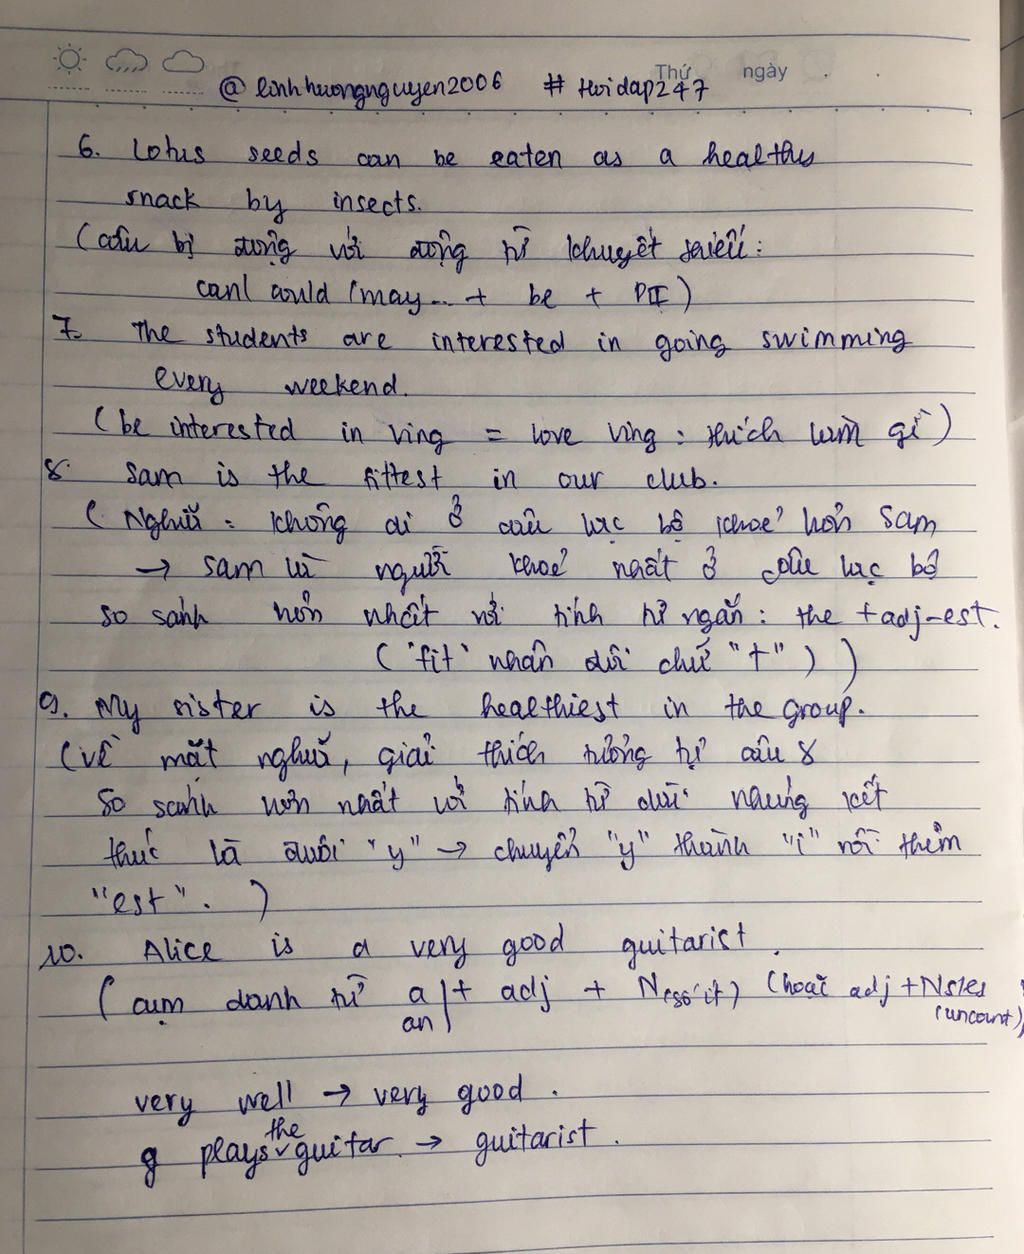 Thứ ngày
@linhhuongnguyen2006 # Hoidap247
6. Lotus seeds can be eaten as a healthy
snack by insects.
(câu bị động với động từ khuyết thiếu:
can/ could /may... + be + PII)
7. The students are interested in going swimming
every weekend.
(be interested in Ving = love Ving : thích làm gì)
8. Sam is the fittest in our club.
(Nghĩa : không ai ở câu lạc bộ khoẻ hơn Sam
→ Sam là người khoẻ nhất ở câu lạc bộ
so sánh hơn nhất với tính từ ngắn : the + adj-est.
("fit" nhân đôi chữ "t") )
9. My sister is the healthiest in the group.
(về mặt nghĩa, giải thích tương tự câu 8
so sánh hơn nhất với tính từ dài nhưng kết
thúc là đuôi "y" → chuyển "y" thành "i" rồi thêm
"est". )
10. Alice is a very good guitarist.
(cụm danh từ a/an + adj + N(số ít) (hoặc adj + Ns/es
(uncount)
very well → very good.
plays the guitar → guitarist.